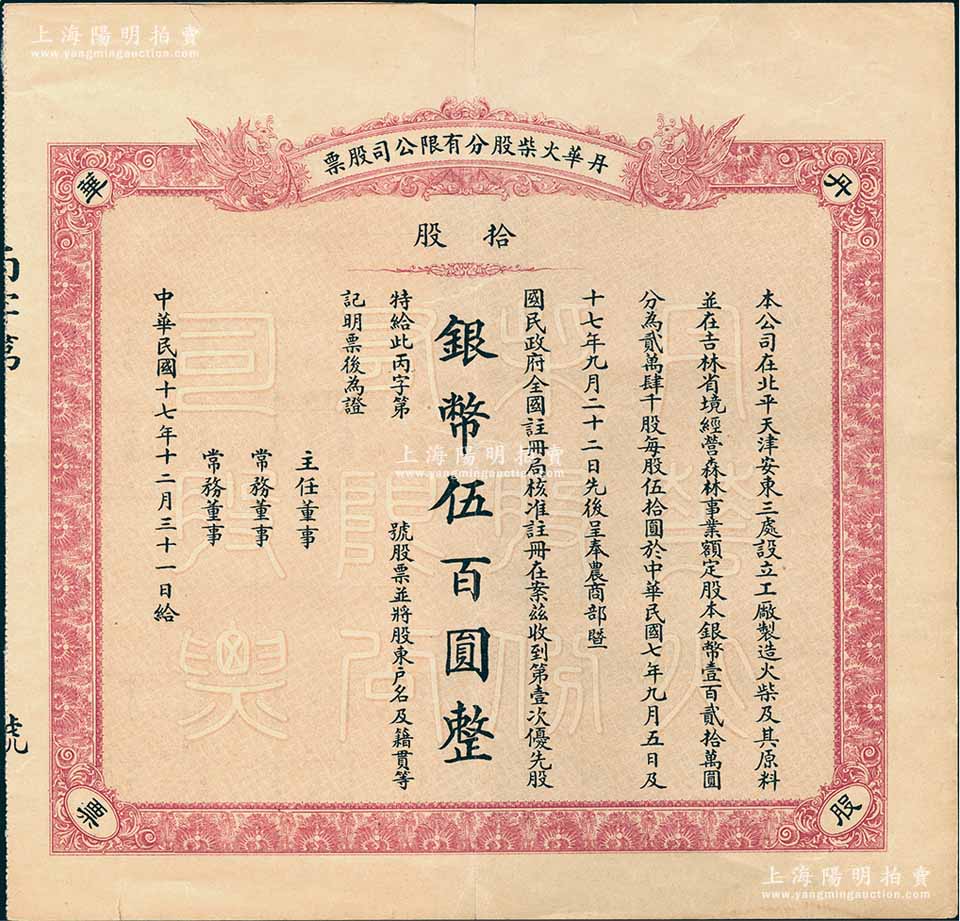 上海陽明拍賣
www.yangmingauction.com
上海陽明拍賣
www.yangmingauction.com
丹華火柴股分有限公司股票
丹
華
股
票
拾股
本公司在北平天津安東三處設立工廠製造火柴及其原料
並在吉林省境經營森林事業額定股本銀幣壹百貳拾萬圓
分為貳萬肆千股每股伍拾圓於中華民國七年九月五日及
十七年九月二十二日先後呈奉農商部暨
國民政府全國註冊局核准註冊在案茲收到第壹次優先股
銀幣伍百圓整
特給此丙字第 號股票並將股東戶名及籍貫等
記明票後為證
主任董事
常務董事
常務董事
中華民國十七年十二月三十一日給
丙字第 號
上海陽明拍賣
www.yangmingauction.com
上海陽明拍賣
www.yangmingauction.com